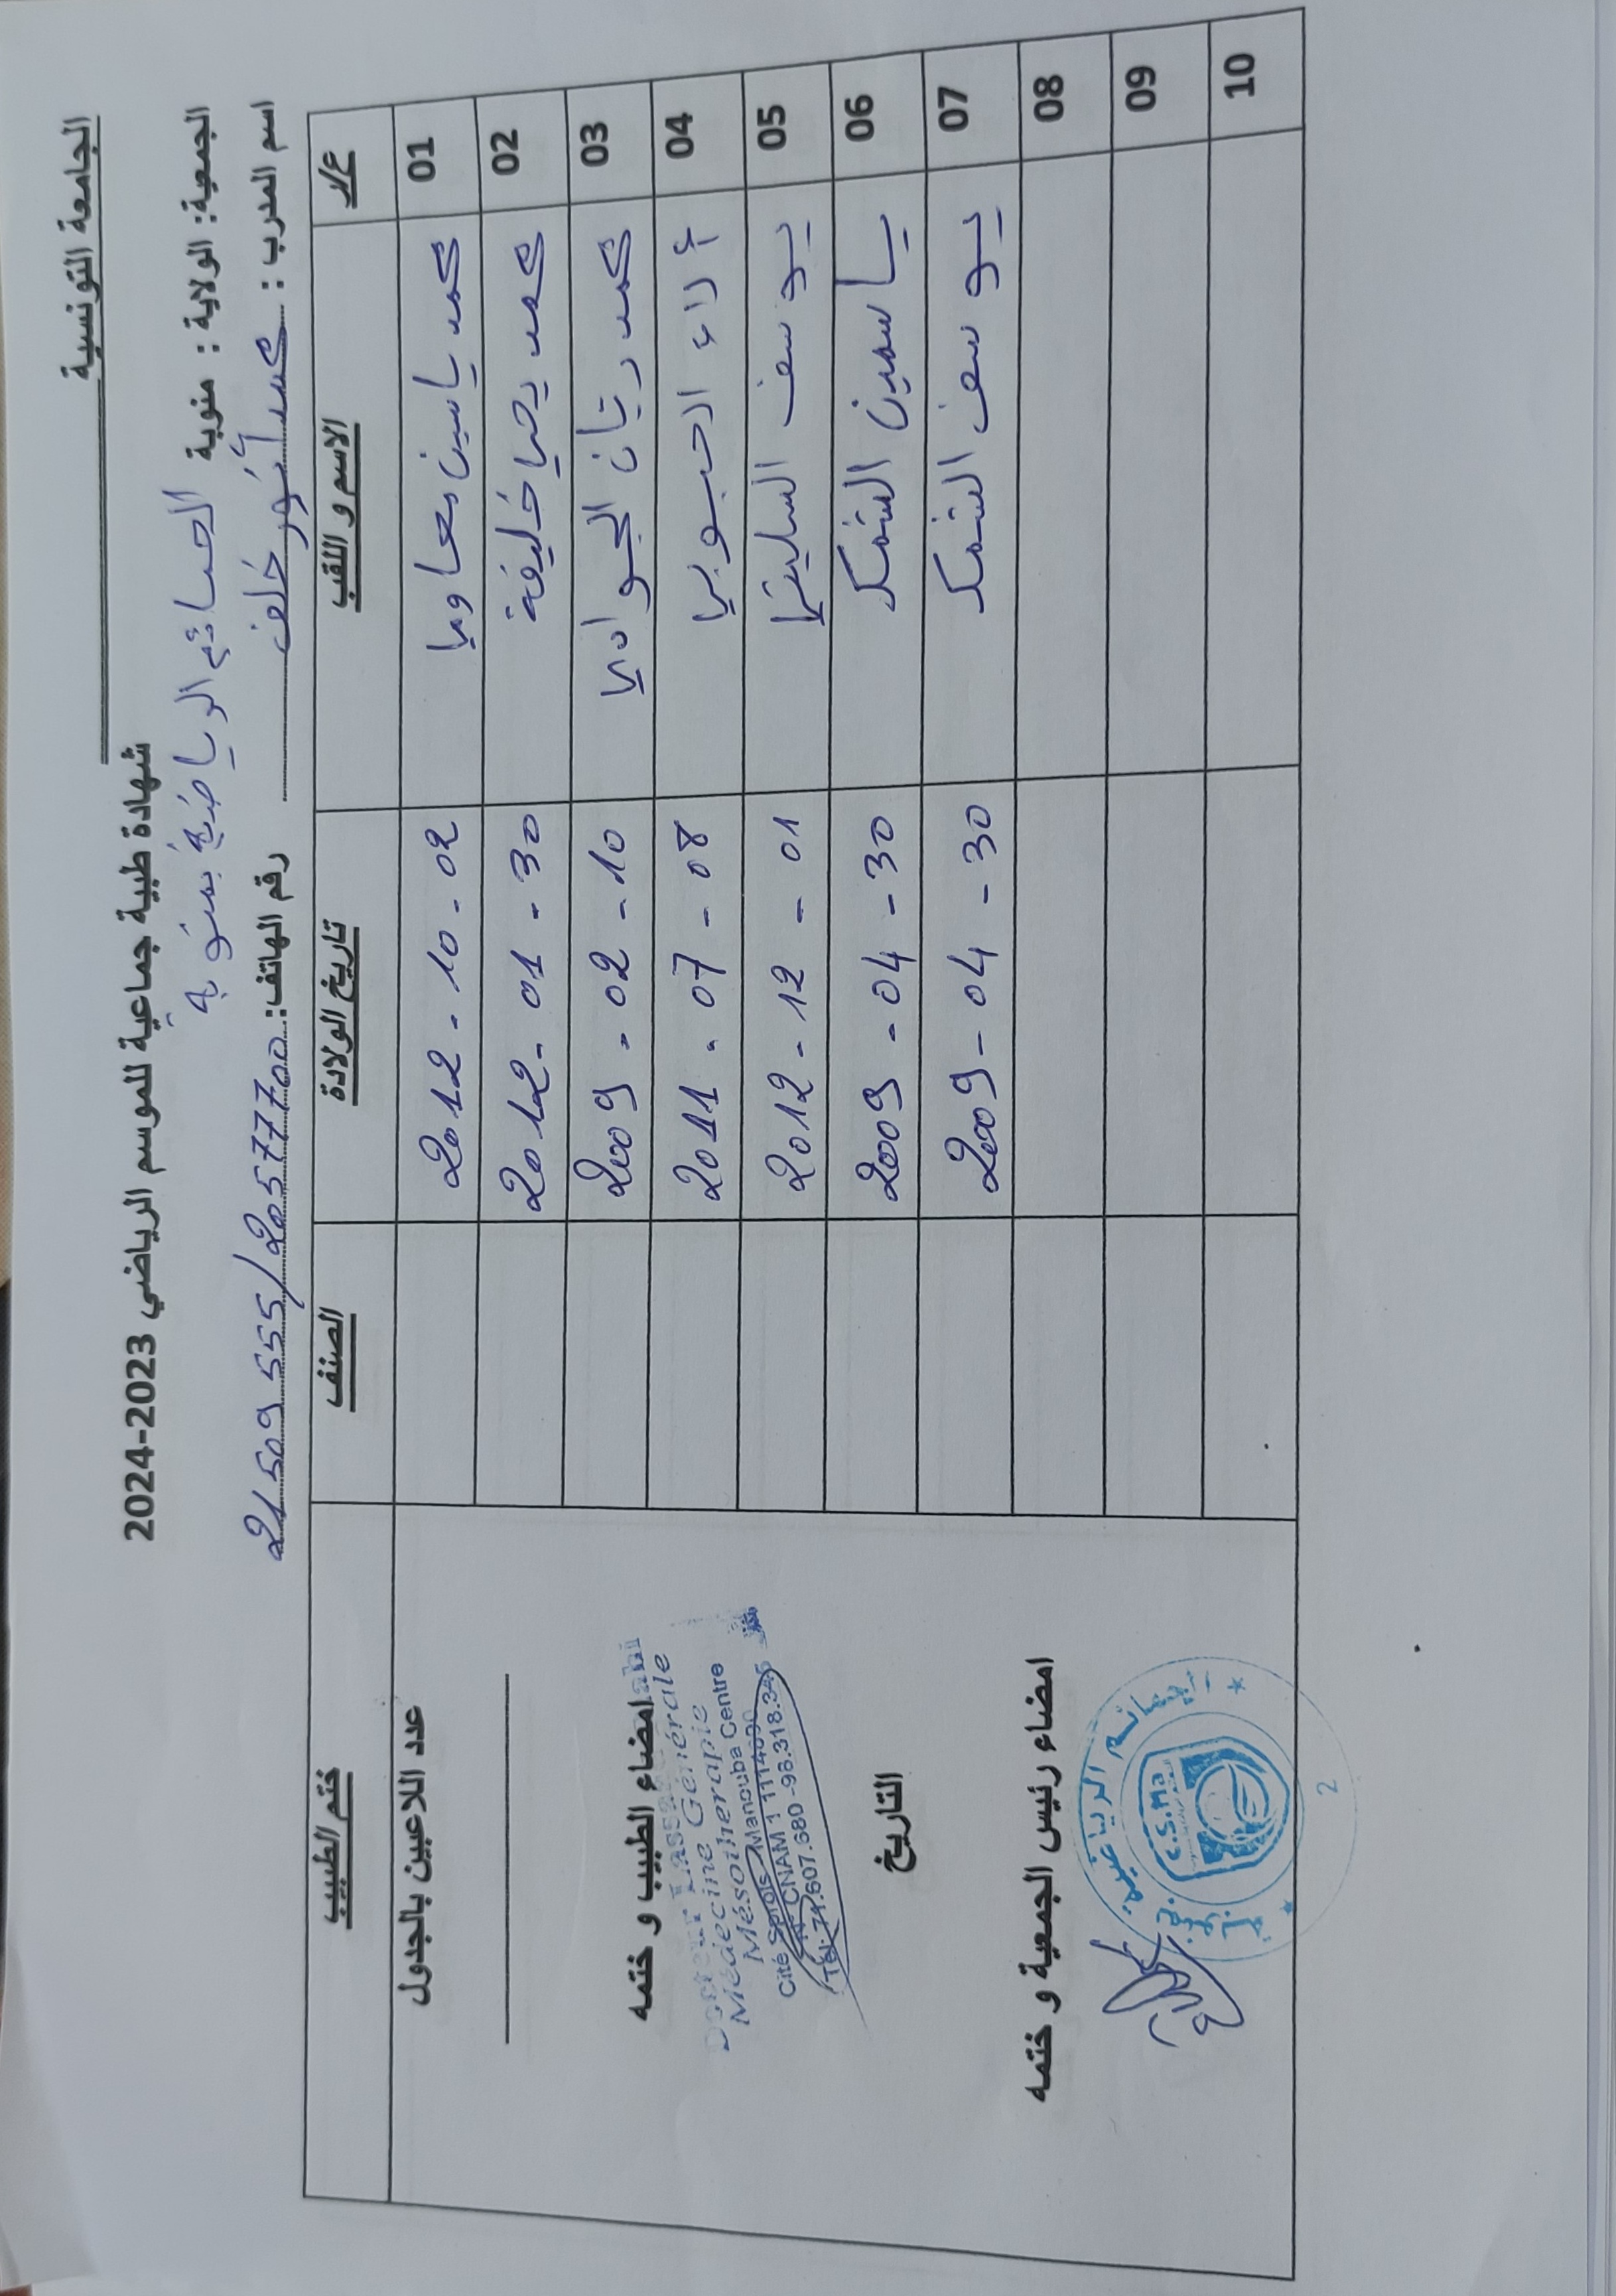 الجامعة التونسية
شهادة طبية جماعية للموسم الرياضي 2023-2024
الجمعية: الولاية : منوبة الحسائم الرياضية بمنوبة
اسم المدرب : محمد أنور خلف رقم الهاتف: 21 509 555/20577700
ع/ر الاسم و اللقب تاريخ الولادة الصنف ختم الطبيب
01 محمد ياسين معاوي 2012 - 10 - 02
02 محمد يحيا خليفة 2012 - 01 - 30
03 محمد ريان الجوادي 2009 - 02 - 10
04 ألاء الحبوبي 2011 - 07 - 08
05 يوسف السليتي 2012 - 12 - 01
06 ياسمين 2009 - 04 - 30
07 يوسف 2009 - 04 - 30
08
09
10
عدد اللاعبين بالجدول
امضاء الطبيب و ختمه
Docteur
Médecine Générale
Mésothérapie
Cité Manouba Centre
CNAM 1
Tél: 71.607.680 -98.318.345
التاريخ
امضاء رئيس الجمعية و ختمه
الرياضية
C.S.Ma
2